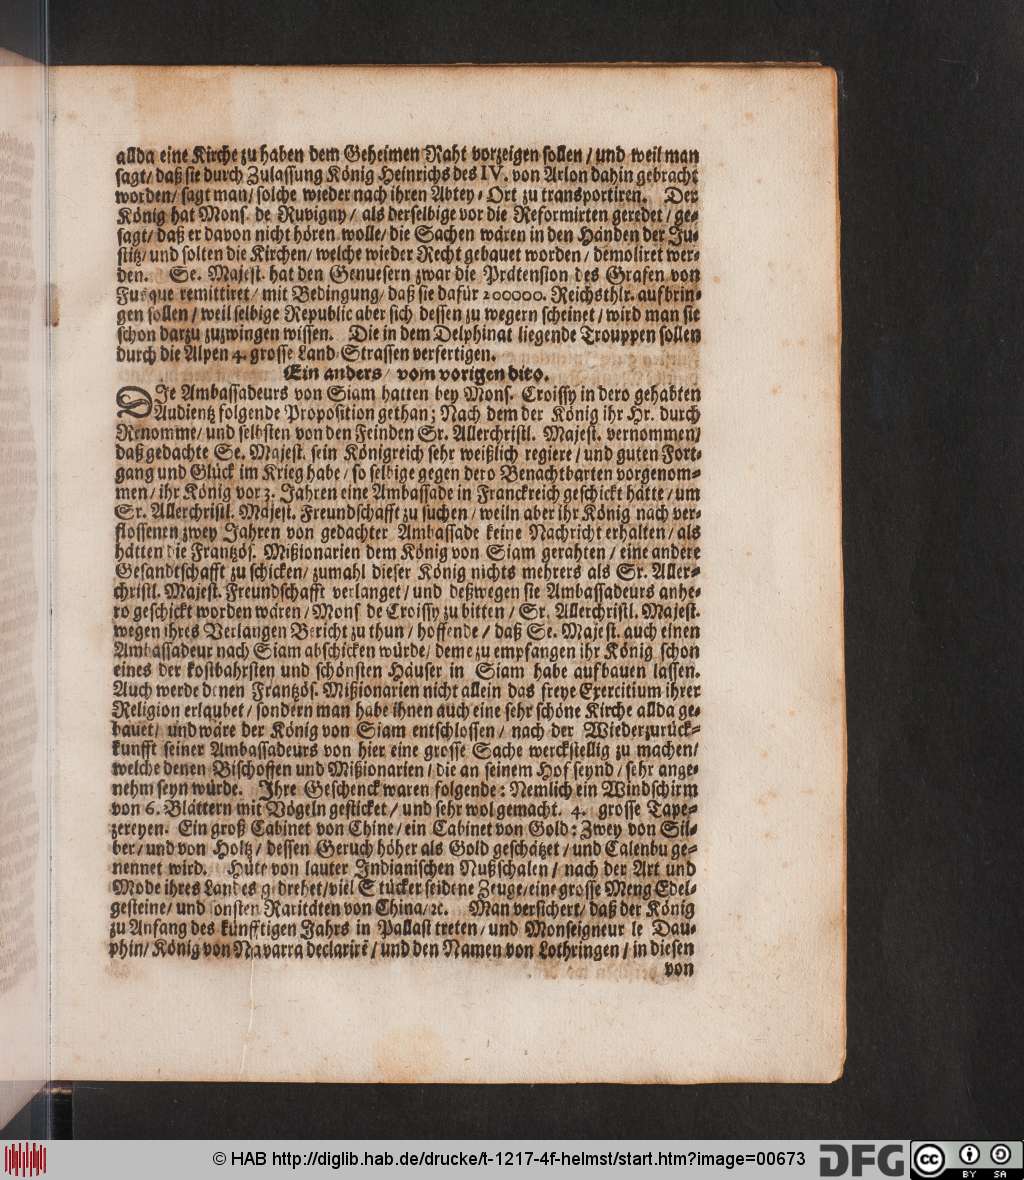 allda eine Kirche zu haben dem Geheimen Raht vorzeigen sollen / und weil man
sagt / daß sie durch Zulassung König Heinrichs des IV. von Arlon dahin gebracht
worden / sagt man / solche wieder nach ihren Abtey-Ort zu transportiren. Der
König hat Mons. de Ruvigny / als derselbige vor die Reformirten geredet / ge-
sagt / daß er davon nicht hören wolle / die Sachen wären in den Händen der Ju-
stitz / und solten die Kirchen / welche wieder Recht gebauet worden / demoliret wer-
den. Se. Majest. hat den Genuesern zwar die Prätension des Grafen von
Fusque remittiret / mit Bedingung / daß sie dafür 200000. Reichsthlr. aufbrin-
gen sollen / weil selbige Republic aber sich dessen zu wegern scheinet / wird man sie
schon darzu zuzwingen wissen. Die in dem Delphinat liegende Trouppen sollen
durch die Alpen 4. grosse Land-Strassen verfertigen.
Ein anders / vom vorigen dito.
DIe Ambassadeurs von Siam hatten bey Mons. Croissy in dero gehabten
Audientz folgende Proposition gethan; Nach dem der König ihr Hr. durch
Renomme / und selbsten von den Feinden Sr. Allerchristl. Majest. vernommen /
daß gedachte Se. Majest. sein Königreich sehr weißlich regiere / und guten Fort-
gang und Glück im Krieg habe / so selbige gegen dero Benachtbarten vorgenom-
men / ihr König vor 3. Jahren eine Ambassade in Franckreich geschickt hätte / um
Sr. Allerchristl. Majest. Freundschafft zu suchen / weiln aber ihr König nach ver-
flossenen zwey Jahren von gedachter Ambassade keine Nachricht erhalten / als
hätten die Frantzös. Mißionarien dem König von Siam gerahten / eine andere
Gesandtschafft zu schicken / zumahl dieser König nichts mehrers als Sr. Aller-
christl. Majest. Freundschafft verlanget / und deßwegen sie Ambassadeurs anhe-
ro geschickt worden wären / Mons de Croissy zu bitten / Sr. Allerchristl. Majest.
wegen ihres Verlangen Bericht zu thun / hoffende / daß Se. Majest. auch einen
Ambassadeur nach Siam abschicken würde / deme zu empfangen ihr König schon
eines der kostbahrsten und schönsten Häuser in Siam habe aufbauen lassen.
Auch werde denen Frantzös. Mißionarien nicht allein das freye Exercitium ihrer
Religion erlaubet / sondern man habe ihnen auch eine sehr schöne Kirche allda ge-
bauet / und wäre der König von Siam entschlossen / nach der Wiederzurück-
kunfft seiner Ambassadeurs von hier eine grosse Sache werckstellig zu machen /
welche denen Bischoffen und Mißionarien / die an seinem Hof seynd / sehr ange-
nehm seyn würde. Ihre Geschenck waren folgende: Nemlich ein Windschirm
von 6. Blättern mit Vögeln gesticket / und sehr wol gemacht. 4. grosse Tape-
zereyen. Ein groß Cabinet von Chine / ein Cabinet von Gold: Zwey von Sil-
ber / und von Holtz / dessen Geruch höher als Gold geschätzet / und Calenbu ge-
nennet wird. Hüte von lauter Indianischen Nußschalen / nach der Art und
Mode ihres Landes gedrehet / viel Stücker seidene Zeuge / eine grosse Meng Edel-
gesteine / und sonsten Raritäten von China / ꝛc. Man versichert / daß der König
zu Anfang des künfftigen Jahrs in Pallast treten / und Monseigneur le Dau-
phin / König von Navarra declarirẽ / und den Namen von Lothringen / in diesen
von
© HAB http://diglib.hab.de/drucke/t-1217-4f-helmst/start.htm?image=00673
DFG
cc BY SA